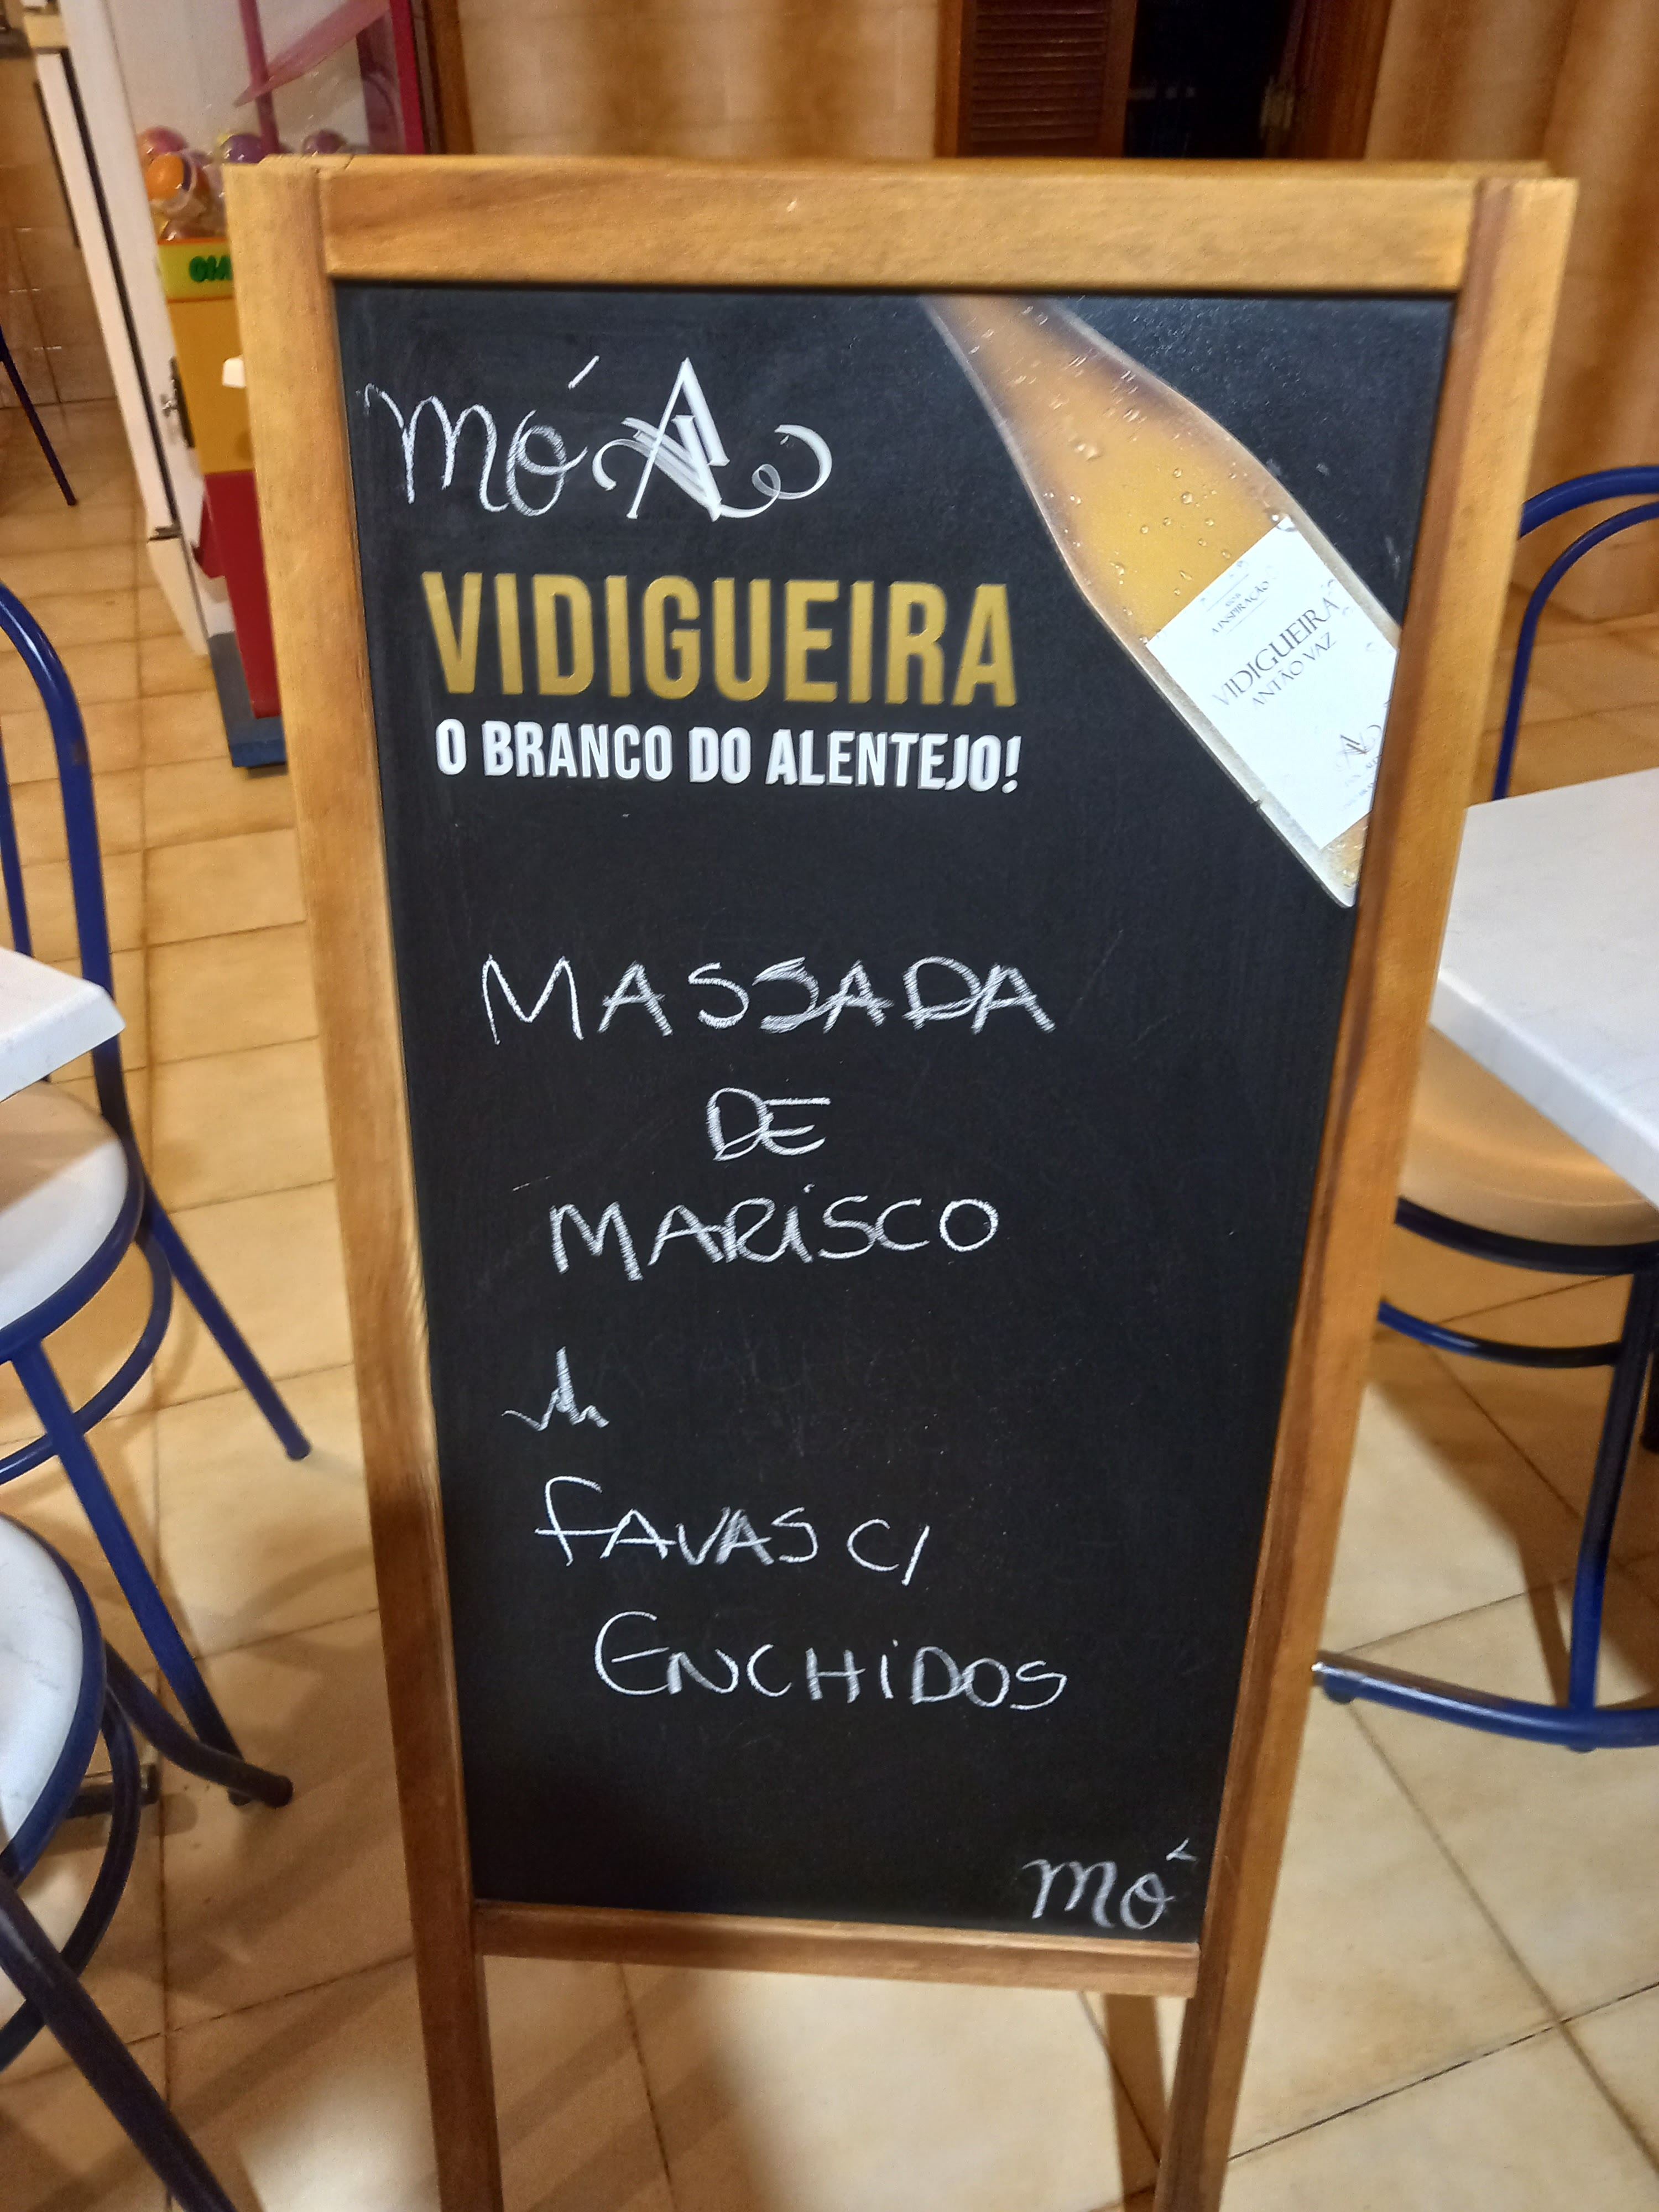 mó
VIDIGUEIRA
O BRANCO DO ALENTEJO!
A INSPIRAÇÃO
VIDIGUEIRA
ANTÃO VAZ
MASSADA
DE
MARiSCO
FAVAS C/
ENCHiDOS
mó